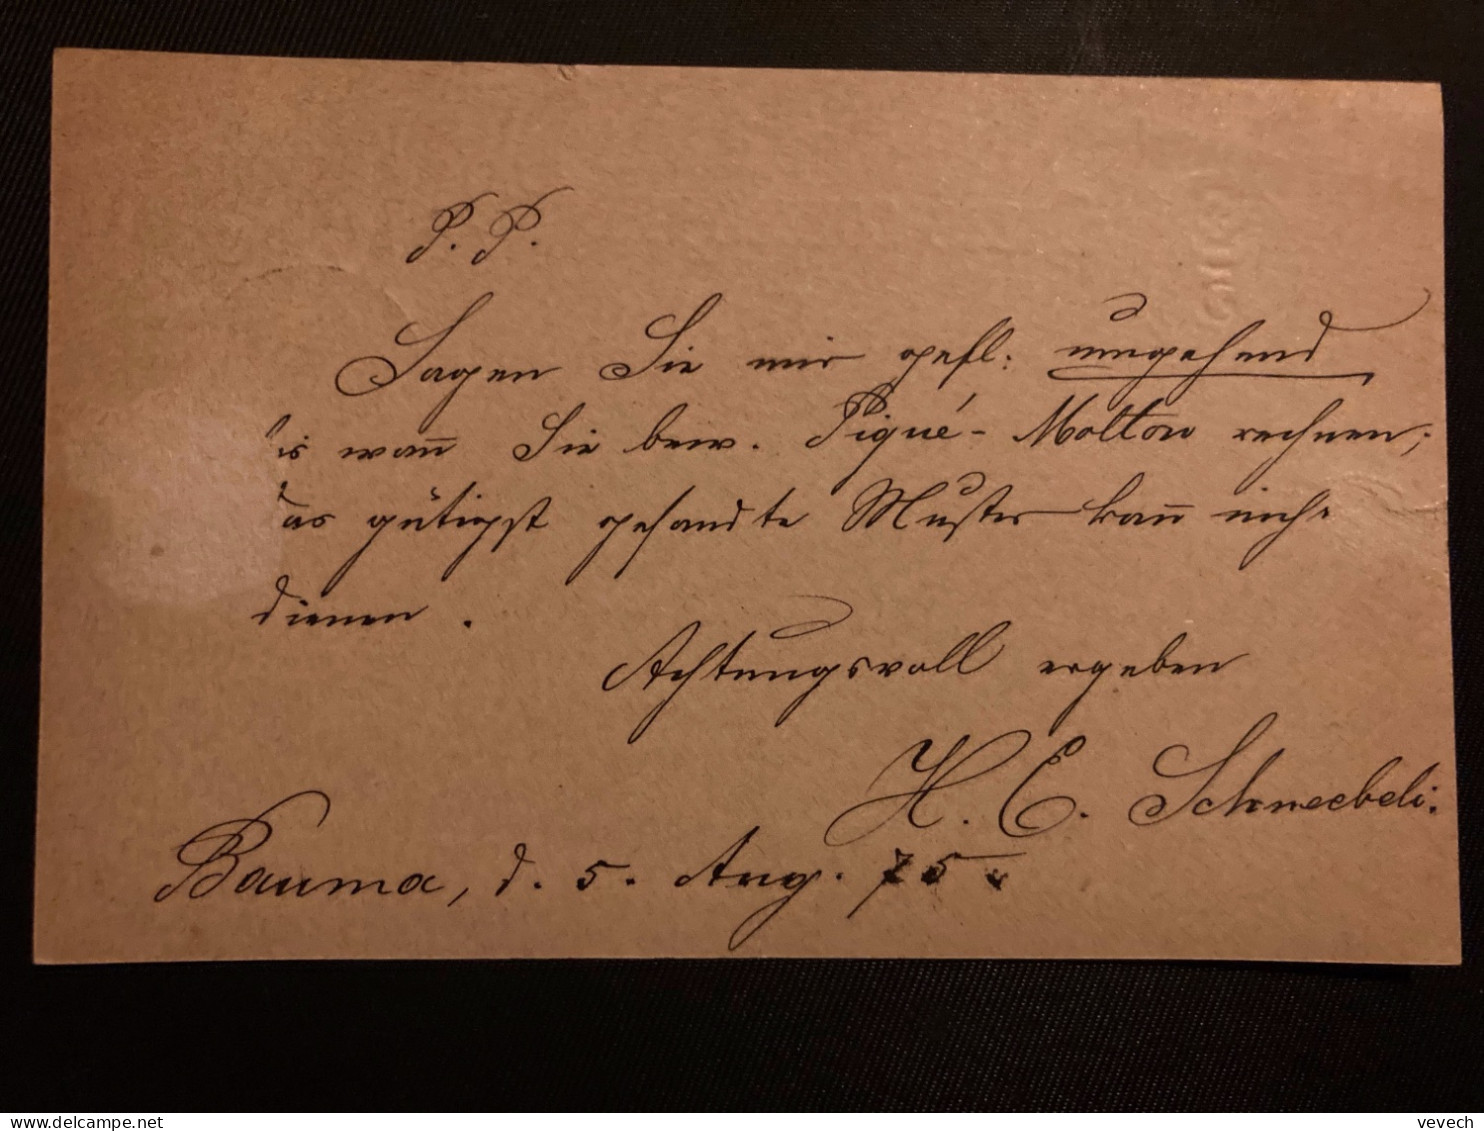 P. P.
Sagen Sie mir gefl: umgehend
bis wann̄ Sie bew. Piqué-Molton rechnen;
das gütigst gesandte Muster kan̄n nicht
dienen.
Achtungsvoll ergeben
H. E. Schneebeli.
Bauma, d. 5. Aug. 75.
vevech